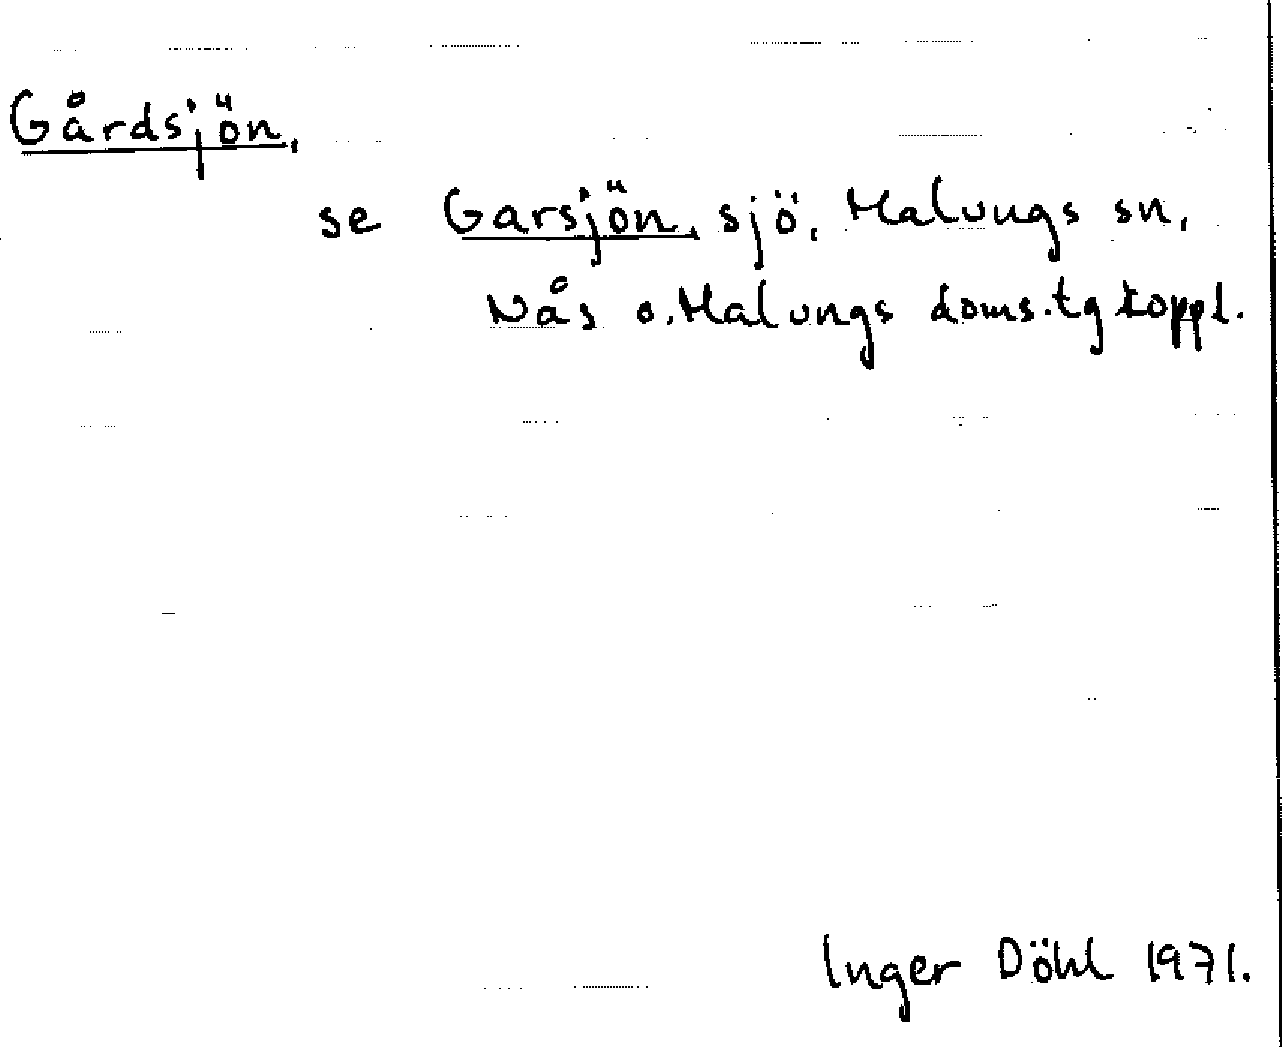 Gårdsjön,
se Garsjön, sjö, Malungs sn,
Nås o. Malungs doms.tg koppl.
Inger Döhl 1971.